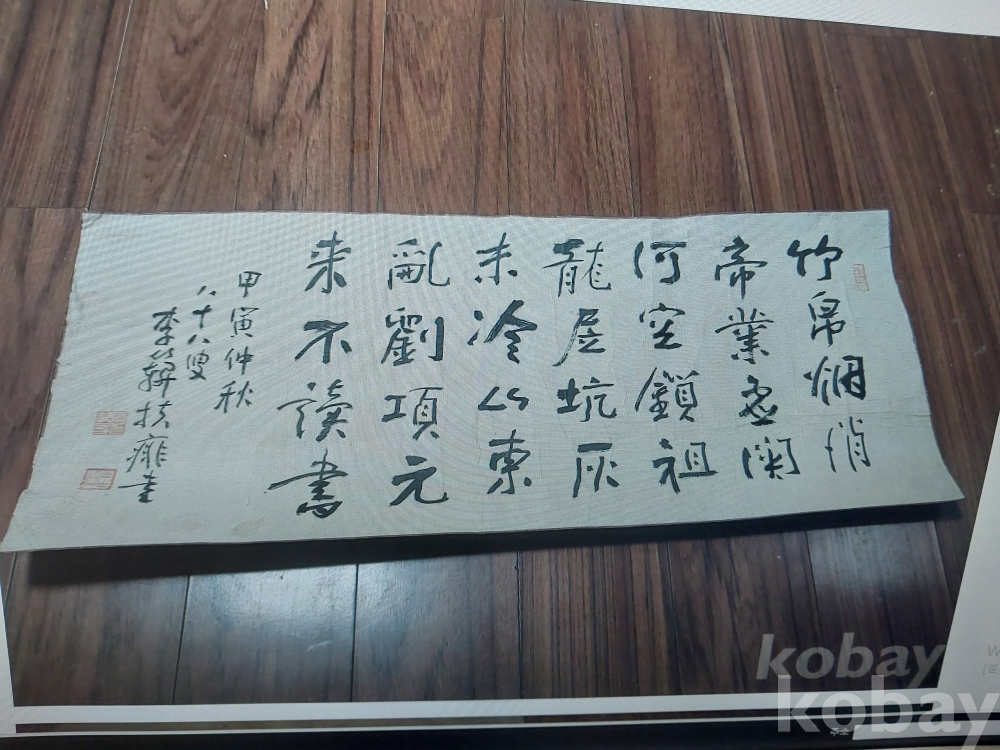 竹帛烟消
帝業虛関
河空鎖祖
龍居坑灰
未冷山東
亂劉項元
来不讀書
甲寅仲秋
八十八叟
李扶書
kobay
kobay